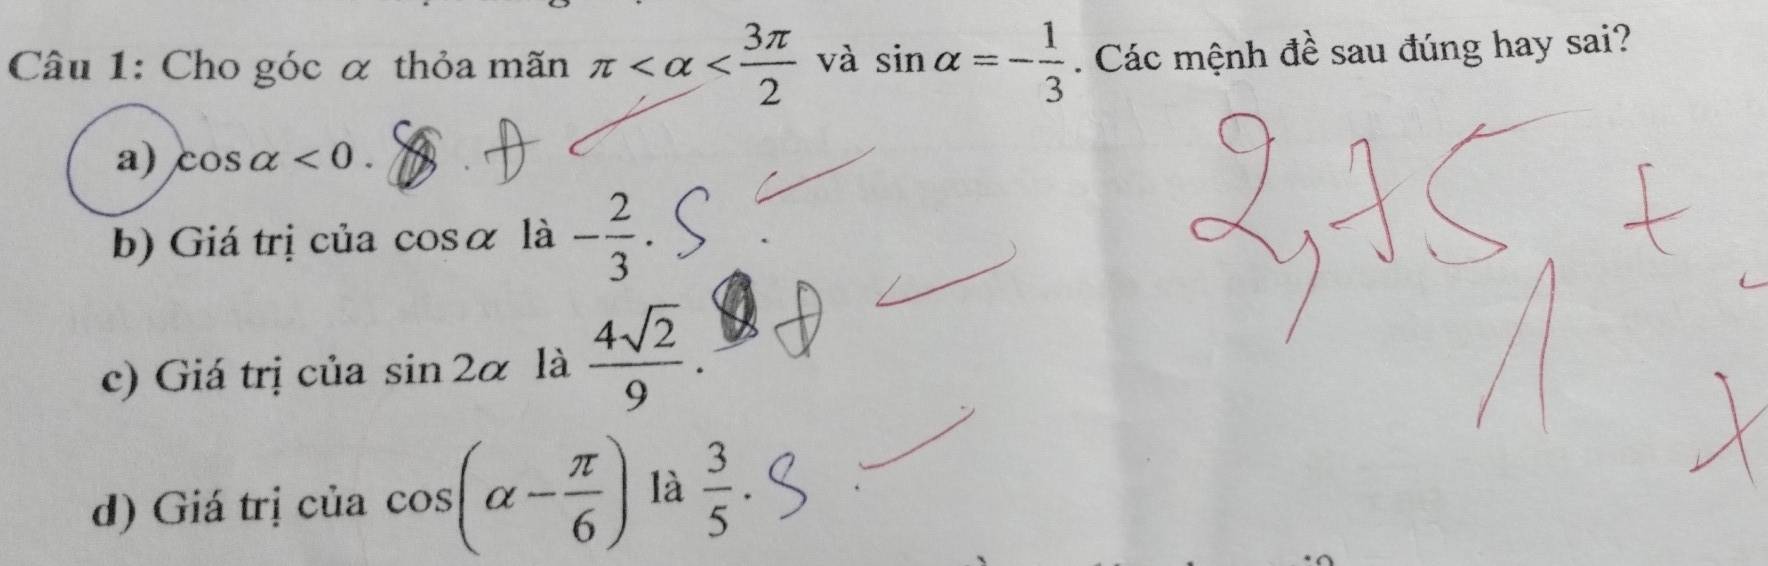 Câu 1: Cho góc α thỏa mãn π < α < 3π/2 và sin α = -1/3. Các mệnh đề sau đúng hay sai?
a) cos α < 0. Đ
b) Giá trị của cos α là -2/3. S
c) Giá trị của sin 2α là 4√2/9. Đ
d) Giá trị của cos(α - π/6) là 3/5. S
2,75 +
1